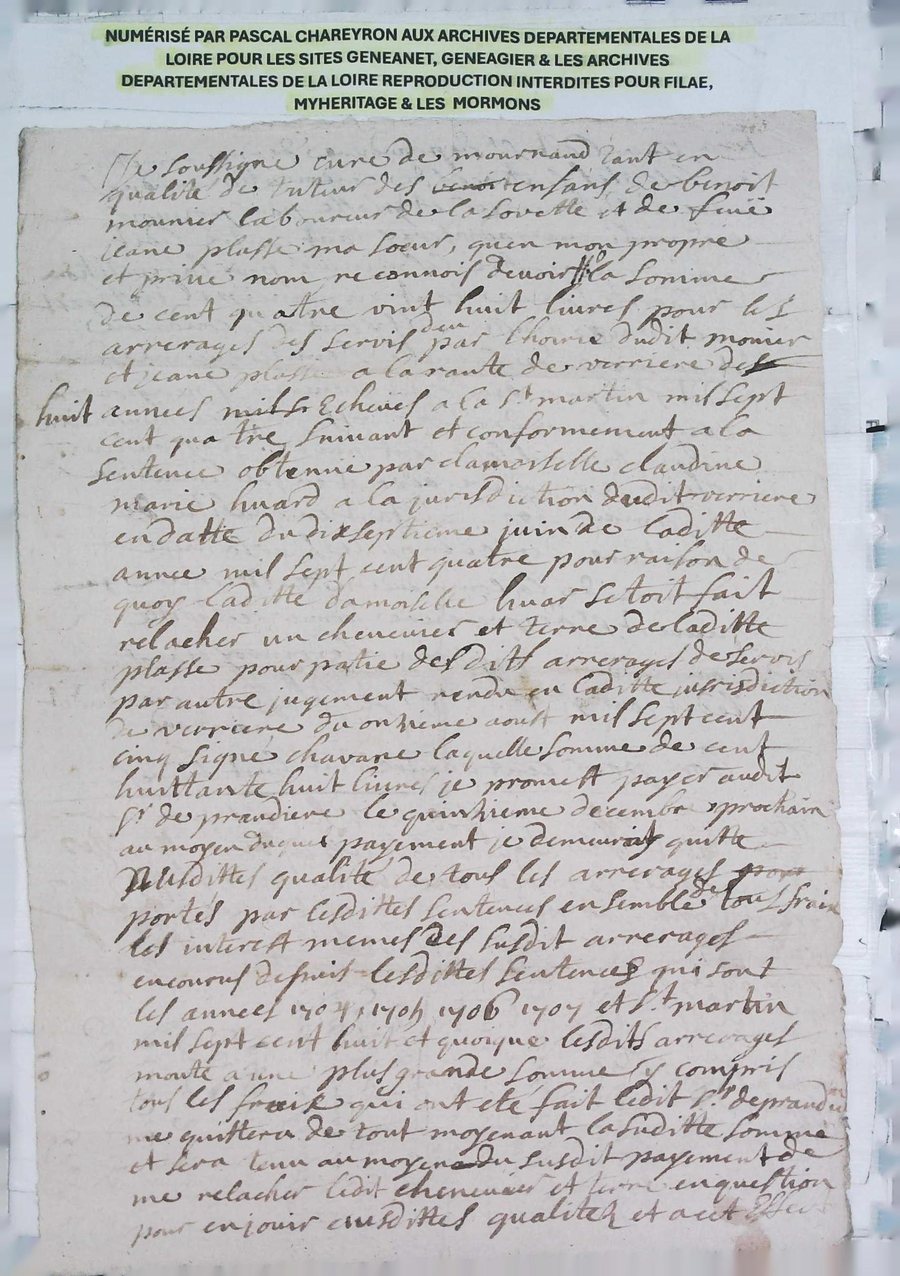 NUMÉRISÉ PAR PASCAL CHAREYRON AUX ARCHIVES DEPARTEMENTALES DE LA
LOIRE POUR LES SITES GENEANET, GENEAGIER & LES ARCHIVES
DEPARTEMENTALES DE LA LOIRE REPRODUCTION INTERDITES POUR FILAE,
MYHERITAGE & LES MORMONS
Je soussigne cure de mournand tant en
qualité de tuteur des enfans de benoit
mounier laboureur de la Lovette et de feüe
jeane plasse ma soeur, quen mon propre
et privé nom, reconnois devoir la somme
de cent quatre vint huit livres pour les
arrerages des servis deu par l'hoirie dudit monier
et jeane plasse a la rante de verriere des
huit annees Echeües a la St martin mil sept
cent quatre suivant et conformement a la
sentence obtenüe par damoiselle claudine
marie huard a la jurisdiction dudit verriere
en datte du dixseptieme juin de laditte
annee mil sept cent quatre pour raison de
quoy laditte damoiselle huar setoit fait
relacher un chenevier et terre de laditte
plasse pour patie desdits arrerages de servis
par autre jugement rendu en laditte jurisdiction
de verriere du onzieme aoust mil sept cent
cinq signe chavane laquelle somme de cent
huittante huit livres je promest payer audit
Sr de prandiere le quinzieme decembre prochain
au moyen duquel payement je demeuray quitte
susdittes qualité de tous les arrerages
portés par lesdittes sentences ensemble de tous frais
les interest memes des susdit arrerages
encourus depuis lesdittes sentences qui sont
les annees 1704, 1705, 1706 1707 et St martin
mil sept cent huit et quoique lesdits arrerages
monte a une plus grande somme y compris
tous les frais qui ont eté fait ledit Sr
me quittera de tout moyenant la suditte somme
et sera tenu au moyen du susdit payement de
me relacher ledit chenevier et terre en question
pour en jouir qualites et a cet effet